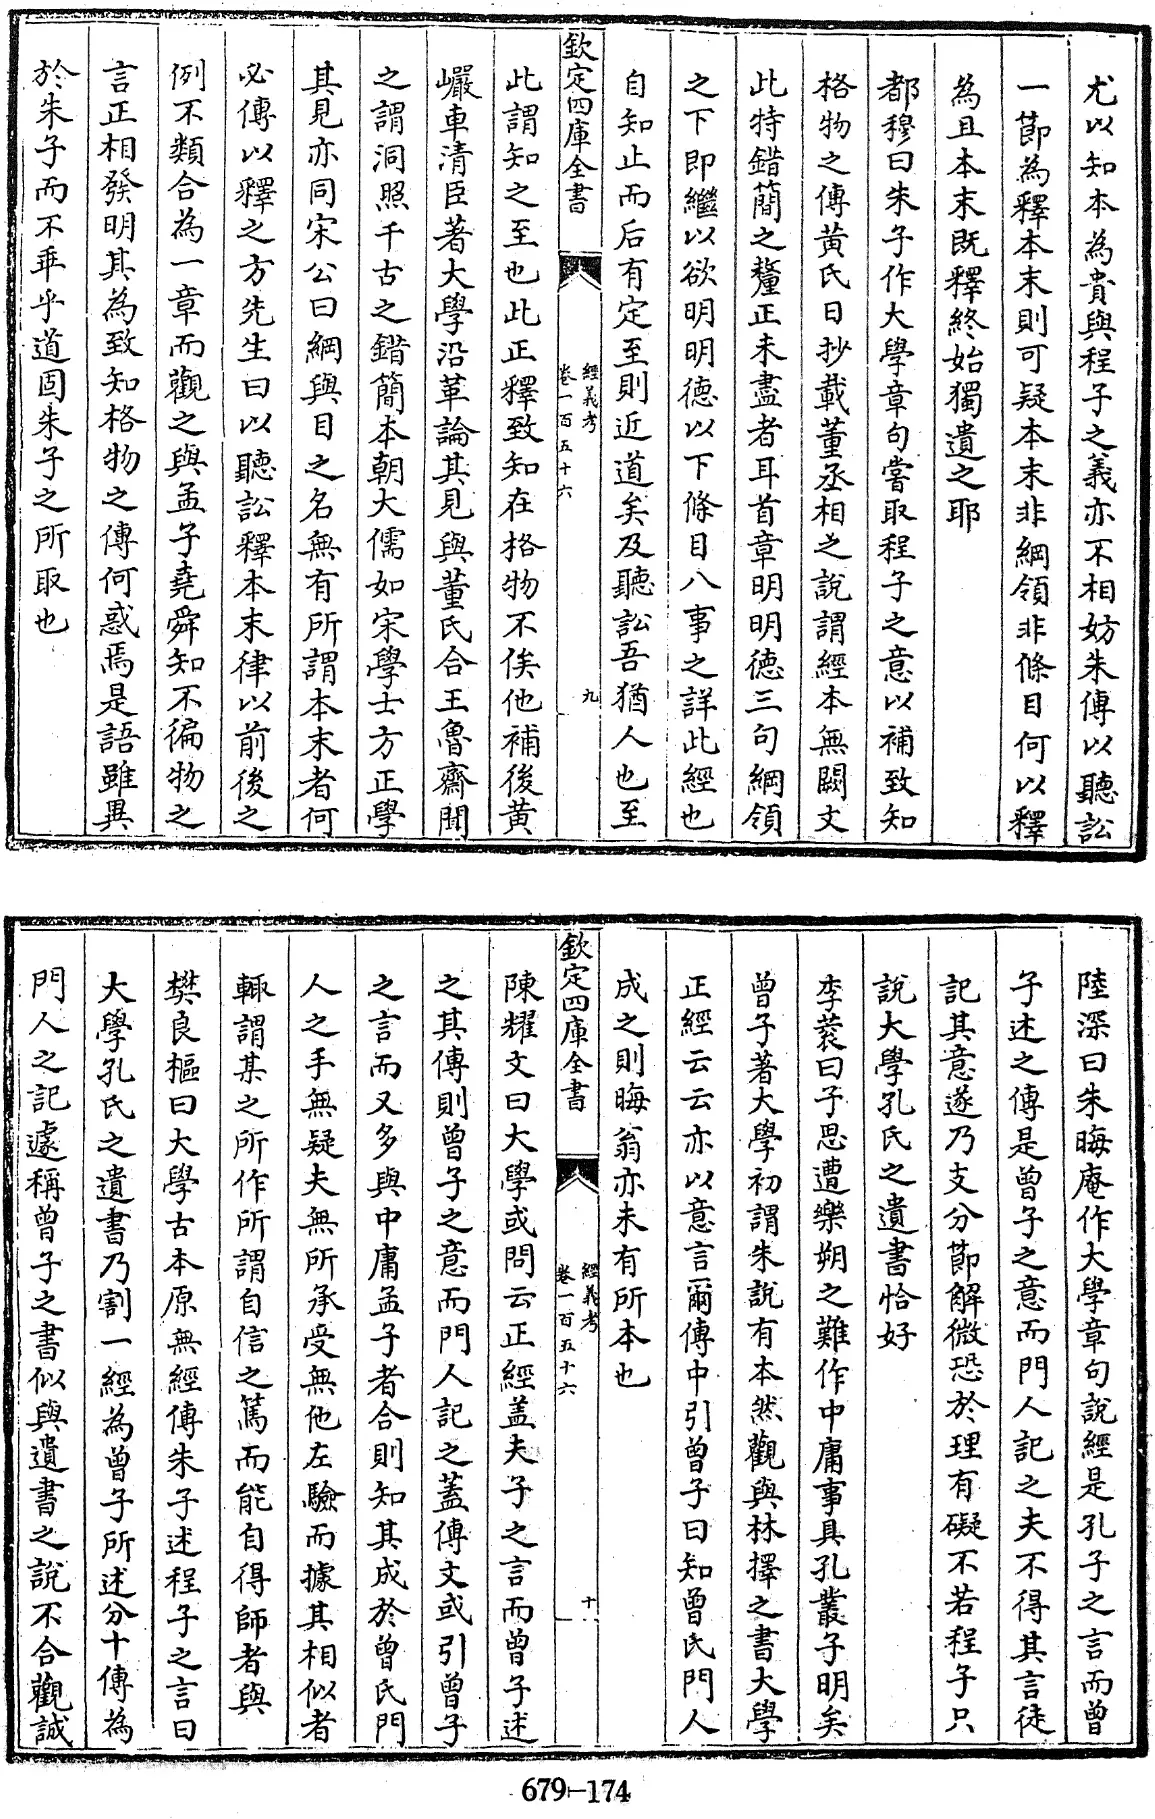 尤以知本為貴與程子之義亦不相妨朱傳以聽訟
一節為釋本末則可疑本末非綱領非條目何以釋
為且本末既釋終始獨遺之耶
都穆曰朱子作大學章句嘗取程子之意以補致知
格物之傳黄氏日抄載董丞相之說謂經本無闕文
此特錯簡之釐正未盡者耳首章明明徳三句綱領
之下即繼以欲明明德以下條目八事之詳此經也
自知止而后有定至則近道矣及聽訟吾猶人也至
欽定四庫全書
經義考
卷一百五十六
九
此謂知之至也此正釋致知在格物不俟他補後黄
巖車清臣著大學沿革論其見與董氏合王魯齋聞
之謂洞照千古之錯簡本朝大儒如宋學士方正學
其見亦同宋公曰綱與目之名無有所謂本末者何
必傳以釋之方先生曰以聽訟釋本末律以前後之
例不類合為一章而觀之與孟子堯舜知不徧物之
言正相發明其為致知格物之傳何惑焉是語雖異
於朱子而不乖乎道固朱子之所取也
陸深曰朱晦庵作大學章句說經是孔子之言而曾
子述之傳是曾子之意而門人記之夫不得其言徒
記其意遂乃支分節解微恐於理有礙不若程子只
說大學孔氏之遺書恰好
李蓘曰子思遭樂朔之難作中庸事具孔叢子明矣
曾子著大學初謂朱說有本然觀與林擇之書大學
正經云云亦以意言爾傳中引曾子曰知曾氏門人
成之則晦翁亦未有所本也
欽定四庫全書
經義考
卷一百五十六
十
陳耀文曰大學或問云正經蓋夫子之言而曾子述
之其傳則曾子之意而門人記之蓋傳文或引曾子
之言而又多與中庸孟子者合則知其成於曾氏門
人之手無疑夫無所承受無他左驗而據其相似者
輒謂某之所作所謂自信之篤而能自得師者與
樊良樞曰大學古本原無經傳朱子述程子之言曰
大學孔氏之遺書乃割一經為曾子所述分十傳為
門人之記遽稱曾子之書似與遺書之說不合觀誠
679-174